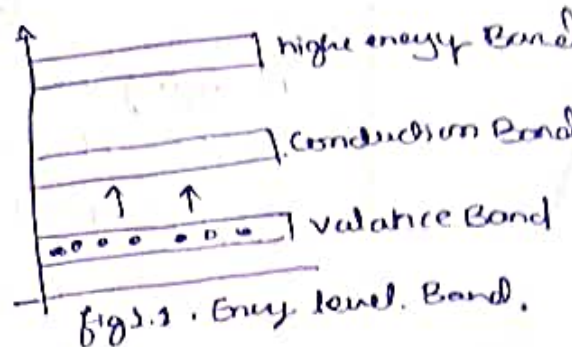 highe enegy Band
Conduction Band
Valance Band
fig 1.1. Enegy level. Band.